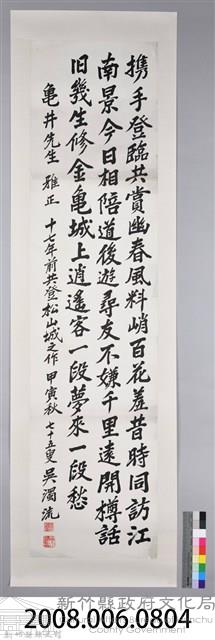 携手登臨共賞幽春風料峭百花羞昔時同訪江
南景今日相陪道後遊尋友不嫌千里遠開樽話
旧幾生修金亀城上逍遥客一段夢來一段愁
亀井先生 雅正 十七年前共登松山城之作 甲寅秋 七十五叟 吳濁流
新竹縣政府文化局
County Government
2008.006.0804